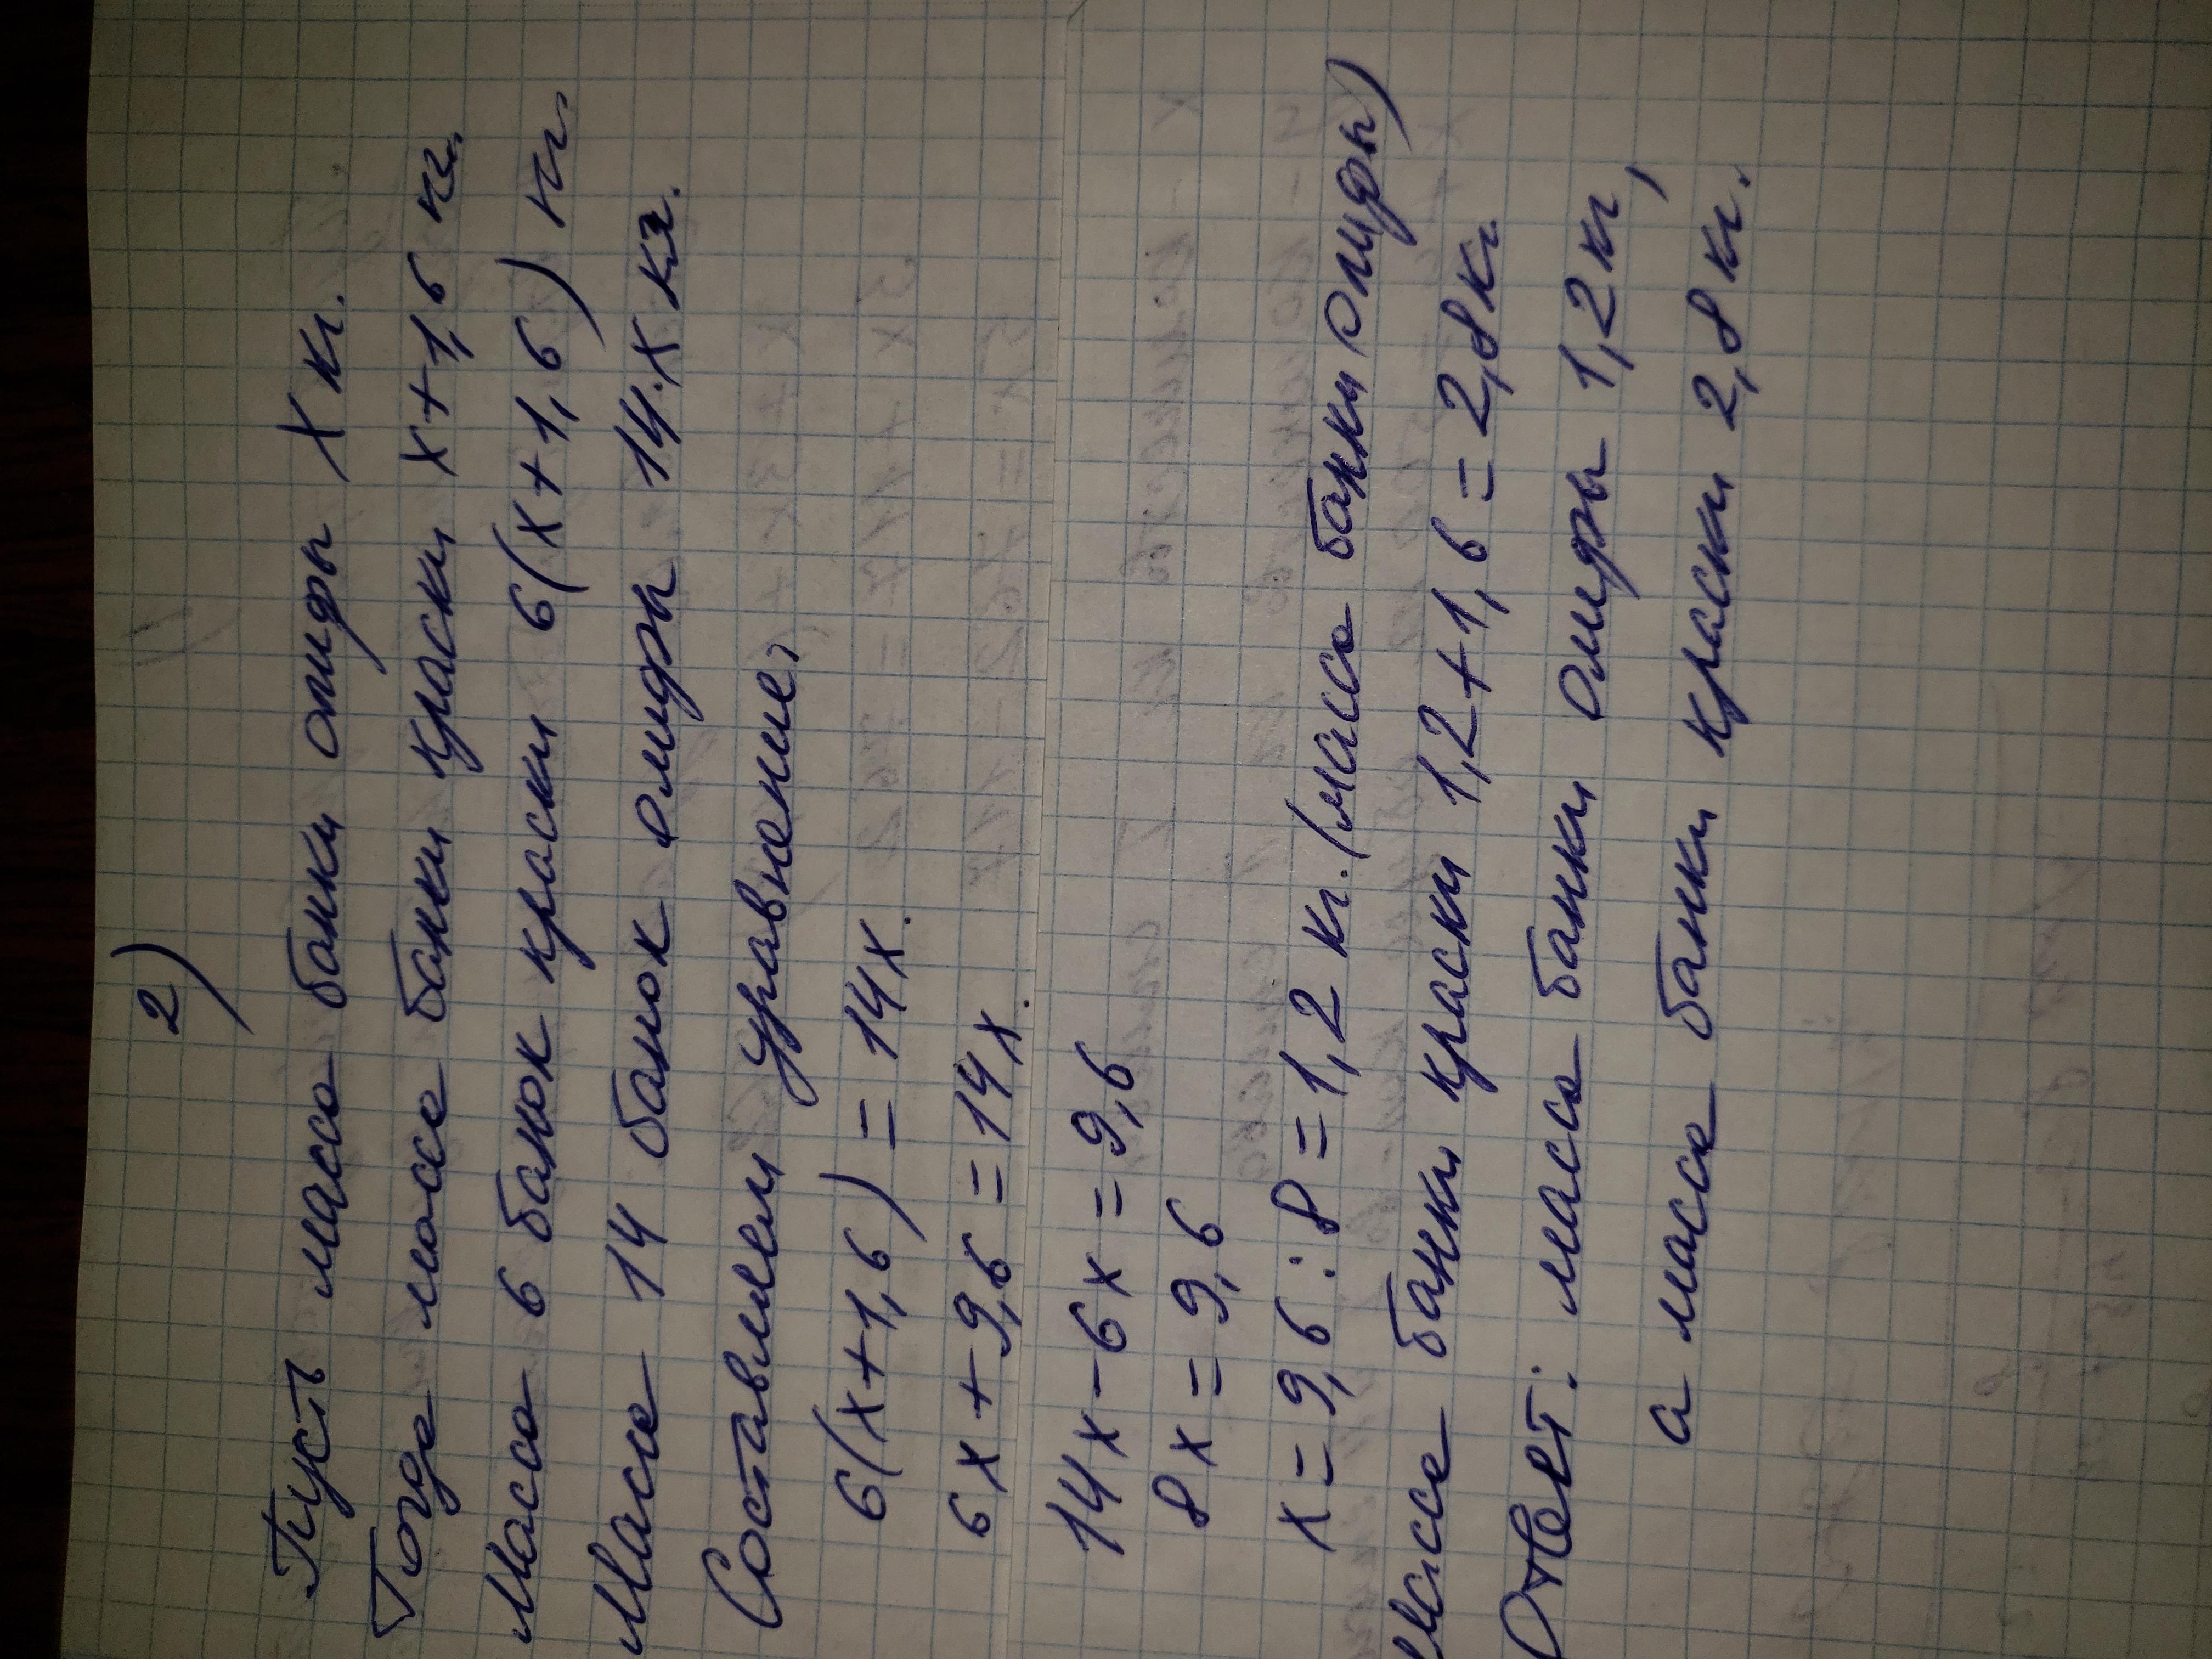 2)
Пусть масса банки олифы X кг.
Тогда масса банки краски x+1,6 кг.
Масса 6 банок краски 6(x+1,6) кг.
Масса 14 банок олифы 14·x кг.
Составляем уравнение,
6(x+1,6)=14x.
6x+9,6=14x.
14x-6x=9,6
8x=9,6
x=9,6:8=1,2 кг.(масса банки олифы)
Масса банки краски 1,2+1,6=2,8кг
Ответ: масса банки олифы 1,2кг,
а масса банки краски 2,8кг.